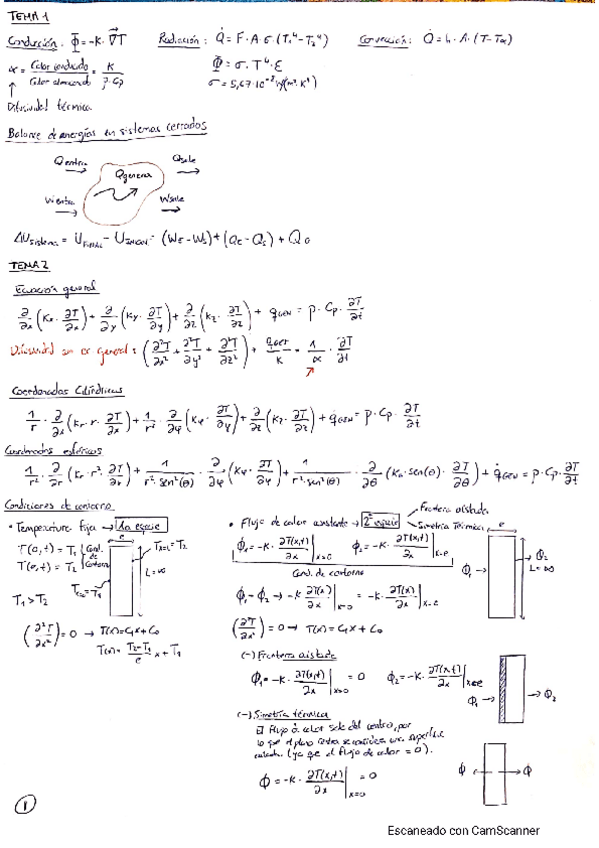 TEMA 1
Conducción: Φ̇ = -K · ∇T   Radiación: Q̇ = F · A · σ · (T₁⁴ - T₂⁴)   Convección: Q̇ = h · A · (T - T∞)
α = Calor conducido / Calor almacenado = K / ρ · Cp   Φ̇ = σ · T⁴ · ε
σ = 5,67 · 10⁻⁸ W/(m² · K⁴)
Difusividad térmica
Balance de energías en sistemas cerrados
Qentra   Qsale
Qgenera
Wentra   Wsale
ΔUsistema = UFINAL - UINICIAL = (WE - WS) + (QE - QS) + QG
TEMA 2
Ecuación general
∂/∂x (Kx · ∂T/∂x) + ∂/∂y (Ky · ∂T/∂y) + ∂/∂z (Kz · ∂T/∂z) + q̇GEN = ρ · Cp · ∂T/∂t
Difusividad en ec general: (∂²T/∂x² + ∂²T/∂y² + ∂²T/∂z²) + q̇GEN/K = 1/α · ∂T/∂t
Coordenadas Cilíndricas
1/r · ∂/∂x (Kr · r · ∂T/∂x) + 1/r² · ∂/∂φ (Kφ · ∂T/∂φ) + ∂/∂z (Kz · ∂T/∂z) + q̇GEN = ρ · Cp · ∂T/∂t
Coordenadas esféricas
1/r² · ∂/∂r (Kr · r² · ∂T/∂r) + 1/r² · sen²(θ) · ∂/∂φ (Kφ · ∂T/∂φ) + 1/r² · sen²(θ) · ∂/∂θ (Kθ · sen(θ) · ∂T/∂θ) + q̇GEN = ρ · Cp · ∂T/∂t
Condiciones de contorno
• Temperatura fija → 1a especie
T(0,t) = T₁ Cond. de
T(e,t) = T₂ Contorno
T₁ > T₂
e
Tx=L = T₂
L = ∞
Tx=0 = T₁
(∂²T/∂x²) = 0 → T(x) = C₁x + C₀
T(x) = T₂ - T₁ / e · x + T₁
• Flujo de calor constante → 2ª especie
Frontera aislada
Simetría Térmica
Φ̇₁ = -K · ∂T(x,t)/∂x |x=0   Φ̇₂ = -K · ∂T(x,t)/∂x |x=e
Cond. de contorno
Φ̇₁ = Φ̇₂ → -K · ∂T(x)/∂x |x=0 = -K · ∂T(x)/∂x |x=e
(∂²T/∂x²) = 0 → T(x) = C₁x + C₀
e
Φ₁ →   → Φ₂
L = ∞
(-) Frontera aislada
Φ̇₁ = -K · ∂T(x,t)/∂x |x=0 = 0   Φ̇₂ = -K · ∂T(x,t)/∂x |x=e
Φ₁ →   → Φ₂
(-) Simetría térmica
El flujo de calor sale del centro, por
lo que el plano central se considera una superficie
(ya que el flujo de calor = 0).
Φ̇ = -K · ∂T(x,t)/∂x |x=0 = 0
Φ ← → Φ
1
Escaneado con CamScanner